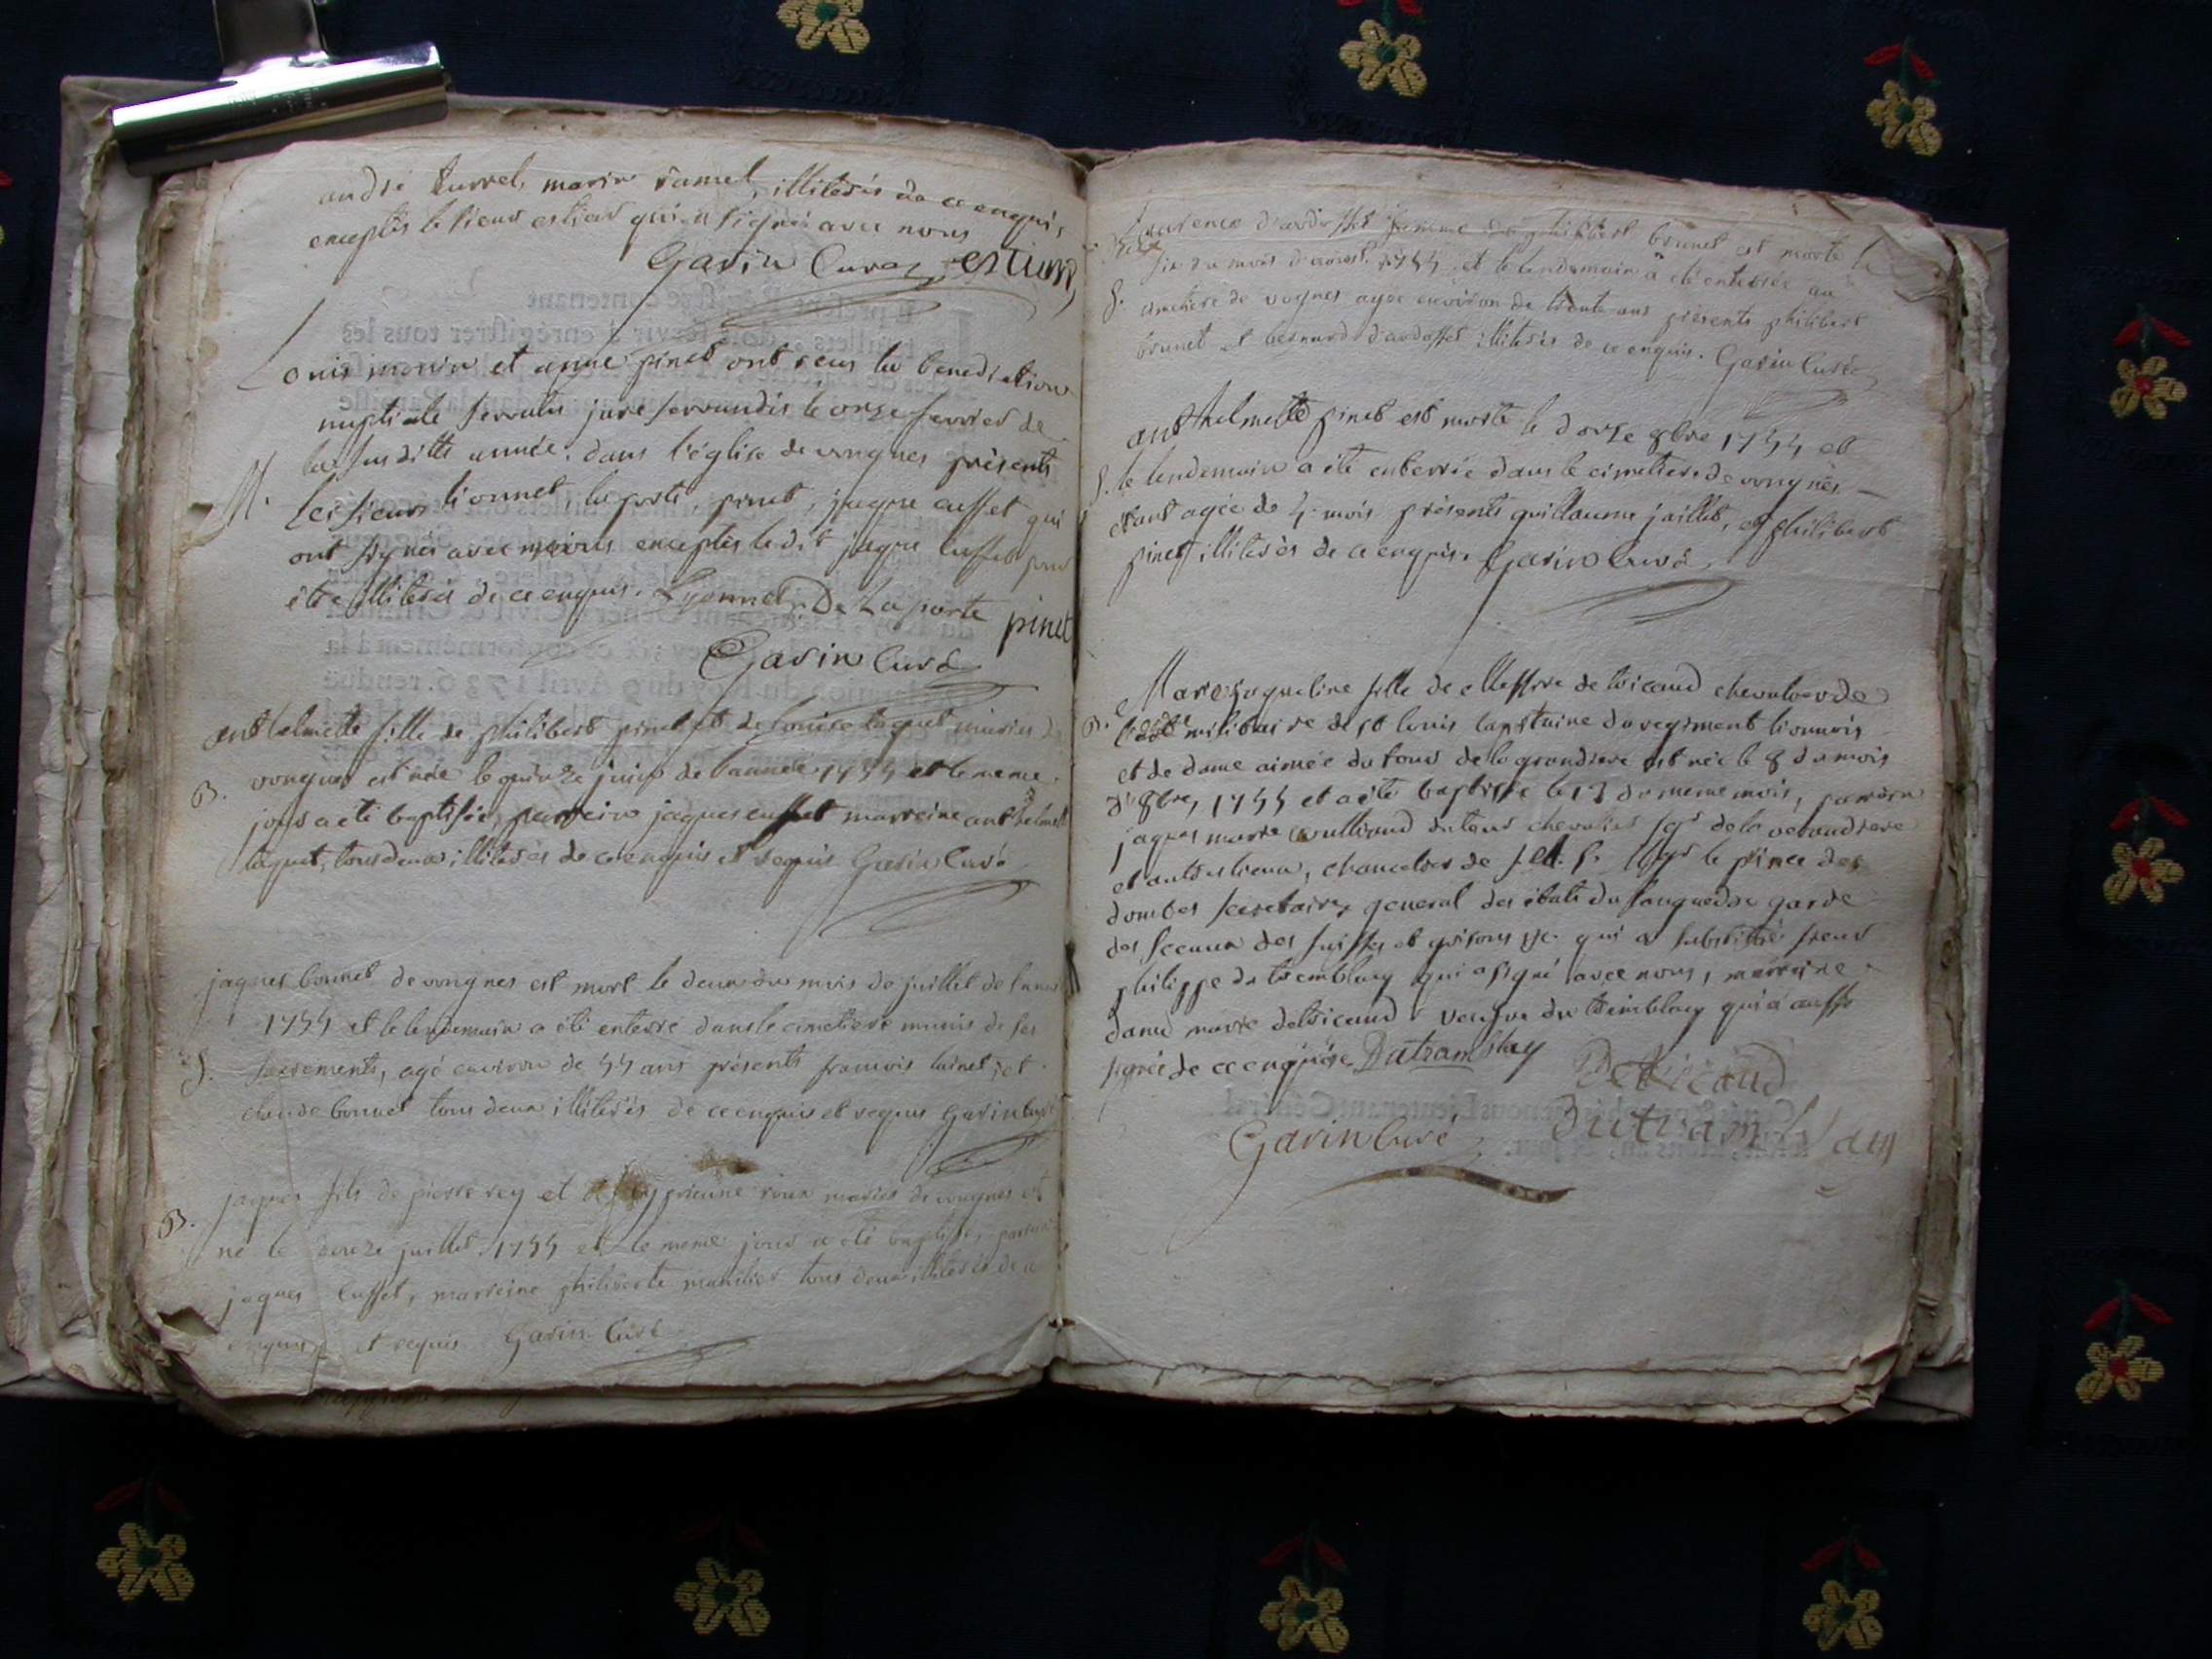 andré turrel, marin ramel, illiterés de ce enquis,
exceptés le sieur estieu qui a signé avec nous
Garin Curé estieu
Louis morin et anne pinet ont reçu la benediction
nuptiale servatis jure servandis le onze fevrier de
la susditte année. dans l'église de vongnes présents
M. les sieurs lionnet laporte, pinet, jaque cusset qui
ont signés avec nous exceptés le dit jaque cusset pour
être illiterés de ce enquis. Lyonnet De Laporte pinet
Garin Curé
anthelmette fille de philibert pinet et de Louise taquet mariés de
B. vongnes est née le quinze juin de l'année 1754 et le meme
jour a eté baptisée, parrein jaques cusset marreine anthelmette
taquet, tous deux illiterés de ce enquis et requis Garin Curé
jaques bonnet de vongnes est mort le deux du mois de juillet de l'année
1754 et le lendemain a été enterré dans le cimetiere munis de ses
S. sacrements, agé environ de 54 ans présents francois et
claude bonnet tous deux illiterés de ce enquis et requis Garin Curé
jaques fils de pierre rey et de cyprienne roux mariés de vongnes est
B.
né le douze juillet 1754 et le meme jour a été baptisé, parrein
jaques Cusset, marreine philiberte tous deux illiterés de ce
enquis et requis Garin Curé
Laurence d'ardosset femme de philibert brunet est morte le
six du mois d'aoust 1754 et le lendemain a été enterrée au
S. cimetiere de vognes agée environ de trente ans présents philibert
brunet et bernard d'ardosset illiterés de ce enquis. Garin Curé
anthelmette pinet est morte le douze 8bre 1754 et
S. le lendemain a été enterrée dans le cimetiere de vongnes
etant agée de 4 mois présents guillaume jaillet, et philibert
pinet illiterés de ce enquis. Garin Curé
Marie jaqueline fille de Messire de tricaud chevalier de
B. l'ordre militaire de st louis capitaine du regiment lionnois
et de dame aimée du tour de la grandiere est née le 8 du mois
d'8bre, 1754 et a été baptisée le 13 du meme mois, parrein
jaques marie dutour chevalier sgr de la
et autres lieux, chancelier de S.A.S. Mgr le prince des
dombes secretaire general des états du languedoc garde
des sceaux des suisses et grisons &c qui a substitué sieur
philippe du tremblay qui a signé avec nous, marreine
dame marie de tricaud veuve du tremblay qui a aussi
signé de ce enquise Dutramblay De Tricaud
Garin Curé Dutramblay